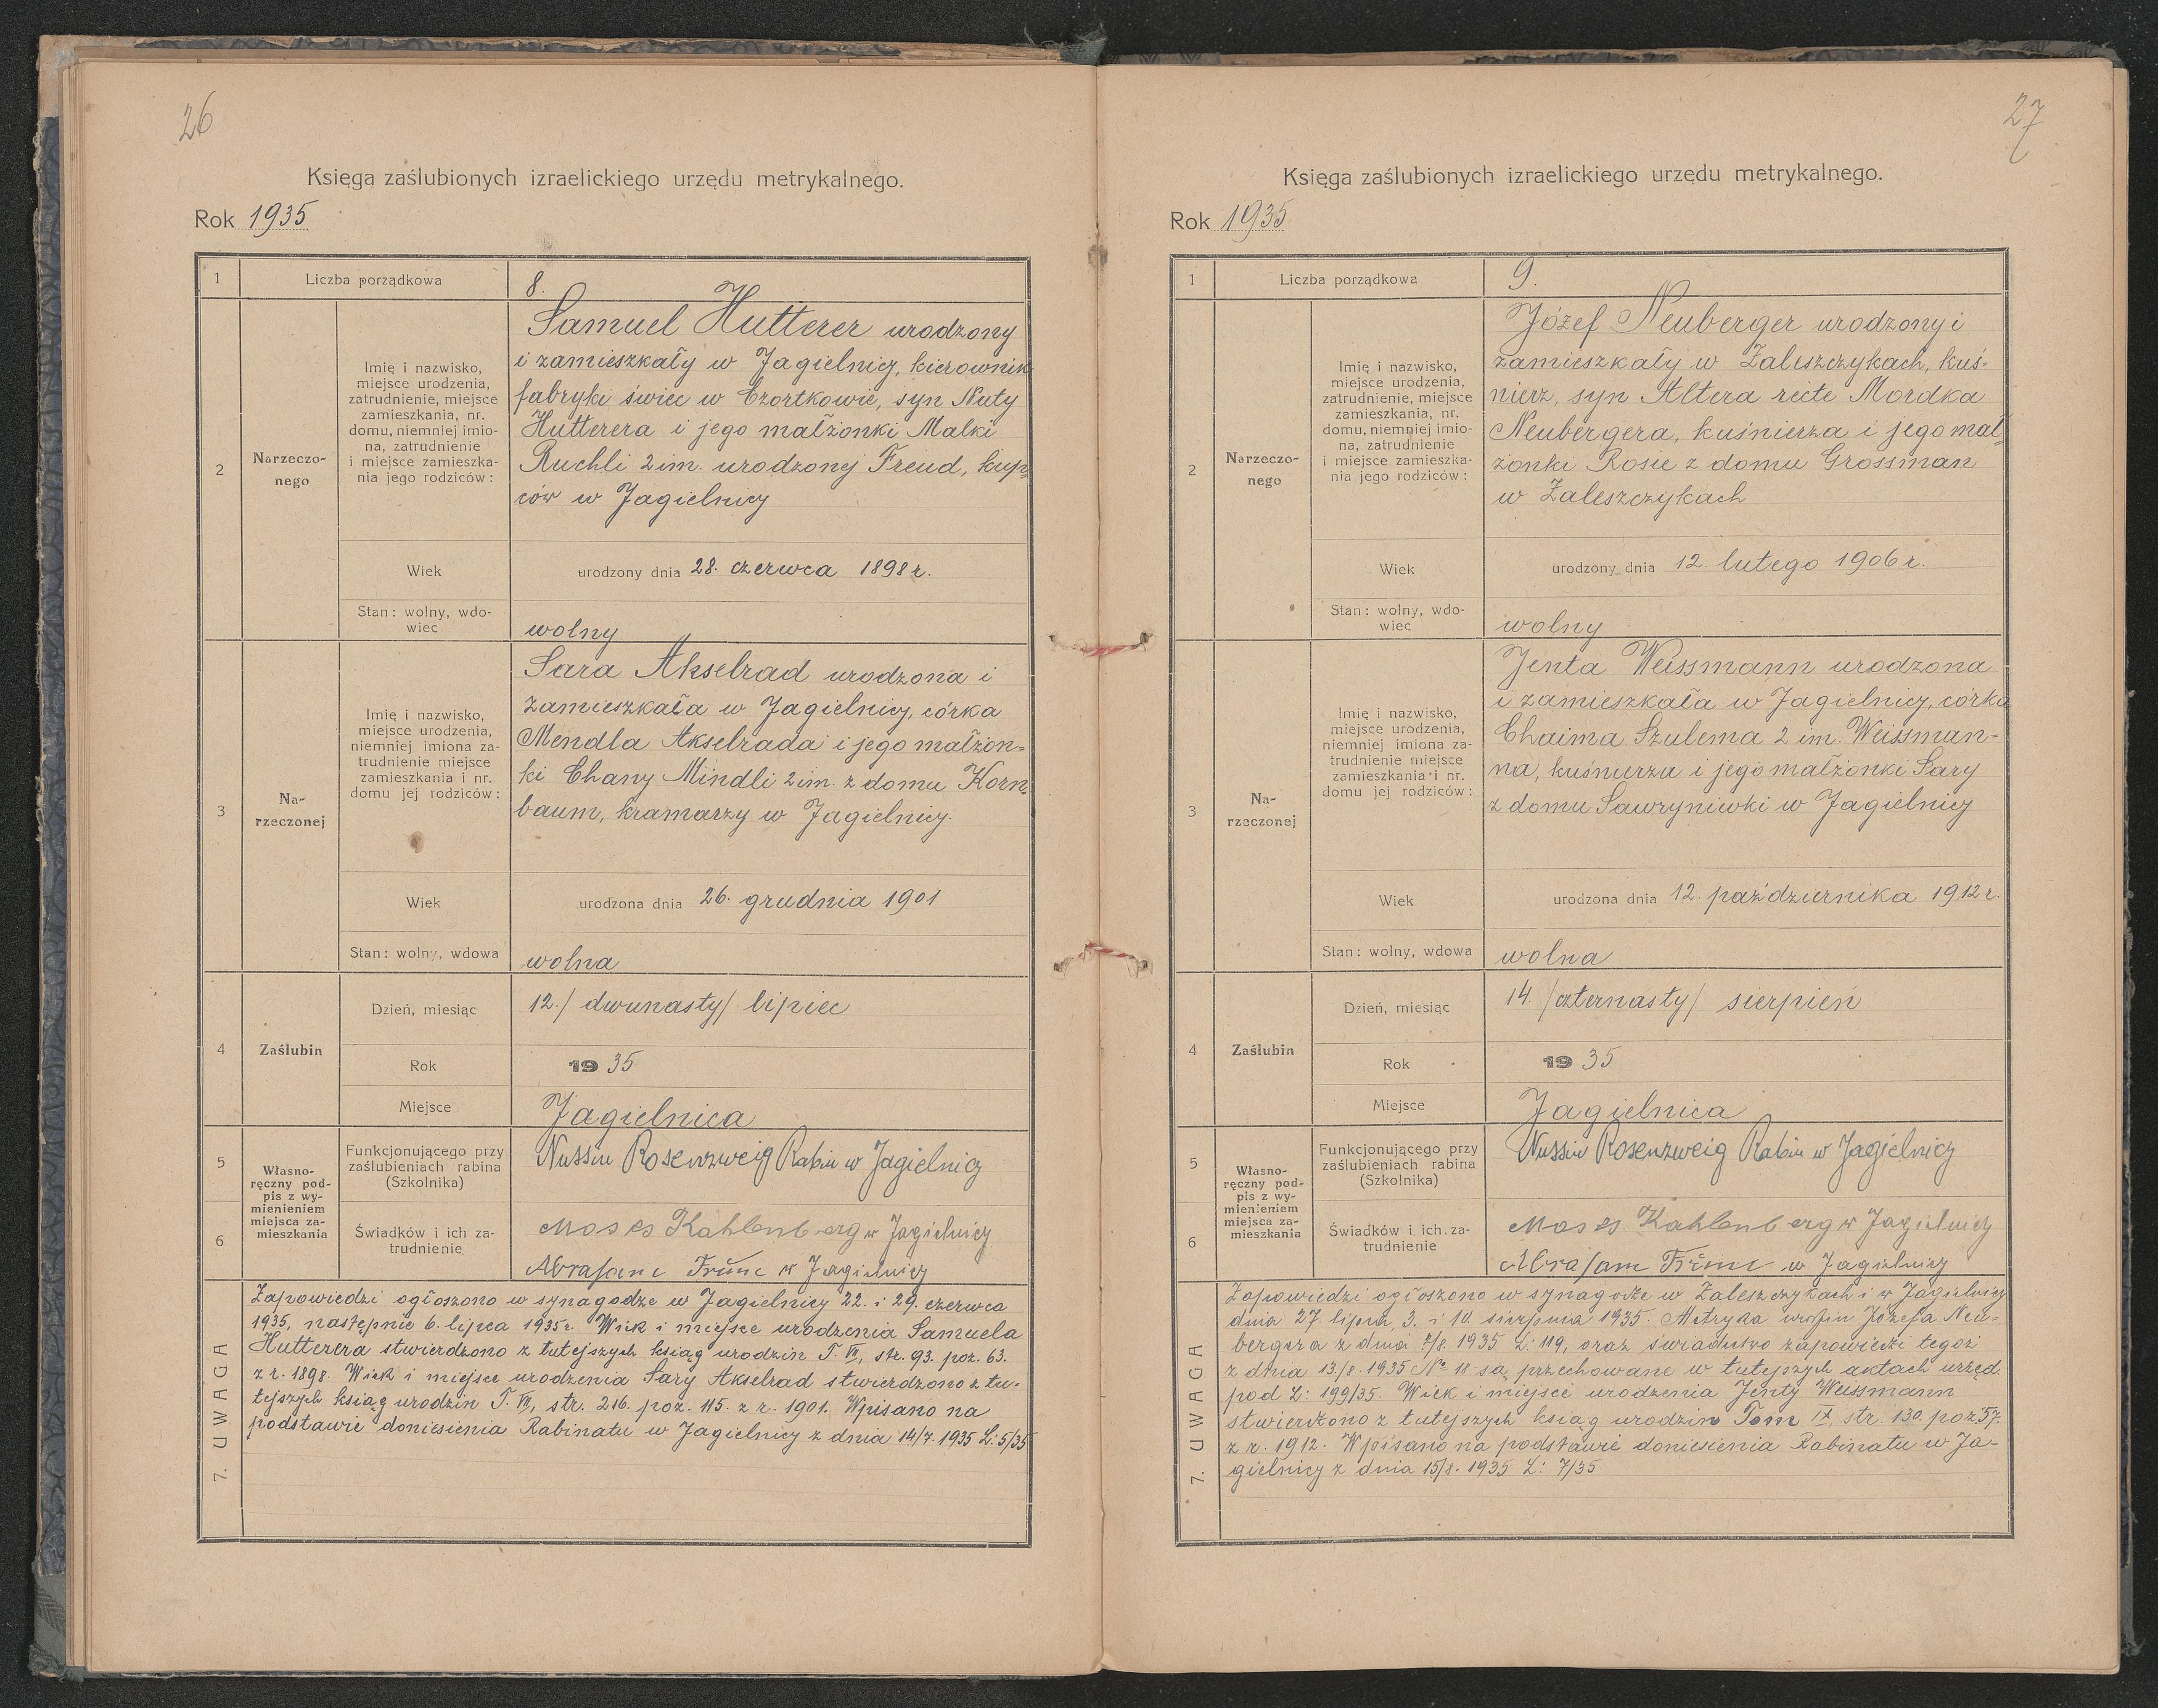 26
Księga zaślubionych izraelickiego urzędu metrykalnego.
Rok 1935
1
Liczba porządkowa
8.
2
Narzeczo-
nego
Imię i nazwisko,
miejsce urodzenia,
zatrudnienie, miejsce
zamieszkania, nr.
domu, niemniej imio-
na, zatrudnienie
i miejsce zamieszka-
nia jego rodziców:
Samuel Hutterer urodzony
i zamieszkały w Jagielnicy, kierownik
fabryki świec w Czortkowie, syn Nuty
Hutterera i jego małżonki Malki
Ruchli 2 im. urodzonej Freud, kup-
ców w Jagielnicy
Wiek
urodzony dnia 28. czerwca 1898 r.
Stan: wolny, wdo-
wiec
wolny
3
Na-
rzeczonej
Imię i nazwisko,
miejsce urodzenia,
niemniej imiona za-
trudnienie miejsce
zamieszkania i nr.
domu jej rodziców:
Sara Akselrad urodzona i
zamieszkała w Jagielnicy, córka
Mendla Akselrada i jego małżon-
ki Chany Mindli 2 im. z domu Korn-
baum, kramarzy w Jagielnicy.
Wiek
urodzona dnia 26. grudnia 1901
Stan: wolny, wdowa
wolna
4
Zaślubin
Dzień, miesiąc
12./ dwunasty/ lipiec
Rok
1935
Miejsce
Jagielnica
5
6
Własno-
ręczny pod-
pis z wy-
mienieniem
miejsca za-
mieszkania
Funkcjonującego przy
zaślubieniach rabina
(Szkolnika)
Nussin Rosenzweig Rabin w Jagielnicy
Świadków i ich za-
trudnienie
Moses Kahlenberg w Jagielnicy
Abraham w Jagielnicy
7. UWAGA
Zapowiedzi ogłoszono w synagodze w Jagielnicy 22. i 29. czerwca
1935, następnie 6. lipca 1935 r. Wiek i miejsce urodzenia Samuela
Hutterera stwierdzono z tutejszych ksiąg urodzin T. VII, str. 93. poz. 63.
z r. 1898. Wiek i miejsce urodzenia Sary Akselrad stwierdzono z tu-
tejszych ksiąg urodzin T. VII, str. 216. poz. 115. z r. 1901. Wpisano na
podstawie doniesienia Rabinatu w Jagielnicy z dnia 14/7. 1935 L: 5/35
27
Księga zaślubionych izraelickiego urzędu metrykalnego.
Rok 1935
1
Liczba porządkowa
9.
2
Narzeczo-
nego
Imię i nazwisko,
miejsce urodzenia,
zatrudnienie, miejsce
zamieszkania, nr.
domu, niemniej imio-
na, zatrudnienie
i miejsce zamieszka-
nia jego rodziców:
Józef Neuberger urodzony i
zamieszkały w Zaleszczykach, kuś-
nierz, syn Altera recte Mordka
Neubergera, kuśnierza i jego mał-
żonki Rosie z domu Grossman
w Zaleszczykach
Wiek
urodzony dnia 12. lutego 1906 r.
Stan: wolny, wdo-
wiec
wolny
3
Na-
rzeczonej
Imię i nazwisko,
miejsce urodzenia,
niemniej imiona za-
trudnienie miejsce
zamieszkania i nr.
domu jej rodziców:
Jenta Weissmann urodzona
i zamieszkała w Jagielnicy, córka
Chaima Szulema 2 im. Weissman-
na, kuśnierza i jego małżonki Sary
z domu Sawryniwki w Jagielnicy
Wiek
urodzona dnia 12. października 1912 r.
Stan: wolny, wdowa
wolna
4
Zaślubin
Dzień, miesiąc
14. /czternasty/ sierpień
Rok
1935
Miejsce
Jagielnica
5
6
Własno-
ręczny pod-
pis z wy-
mienieniem
miejsca za-
mieszkania
Funkcjonującego przy
zaślubieniach rabina
(Szkolnika)
Nussin Rosenzweig Rabin w Jagielnicy
Świadków i ich za-
trudnienie
Moses Kahlenberg w Jagielnicy
Abraham w Jagielnicy
7. UWAGA
Zapowiedzi ogłoszono w synagodze w Zaleszczykach i w Jagielnicy
dnia 27. lipca, 3. i 10. sierpnia 1935. Metryka urodzin Józefa Neu-
bergera z dnia /8. 1935 L: 119, oraz świadectwo zapowiedzi tegoż
z dnia 13/8. 1935 No 18 są przechowane w tutejszych aktach urzęd.
pod L: 199/35. Wiek i miejsce urodzenia Jenty Weissmann
stwierdzono z tutejszych ksiąg urodzin Tom IX, str. 130. poz 57.
z r. 1912. Wpisano na podstawie doniesienia Rabinatu w Ja-
gielnicy z dnia 15/8. 1935 L: 7/35